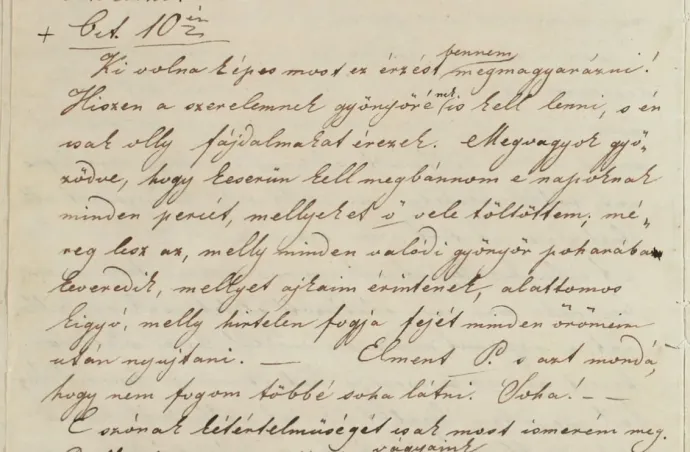 + Oct. 10 én
bennem
Ki volna képes most ez érzést megmagyarázni!
Hiszen a szerelemnek gyönyörének is kell lenni, s én
csak olly fájdalmakat érezek. Megvagyok győ„
ződve, hogy keserün kell megbánnom e napoknak
minden perczét, mellyeket ő vele töltöttem; mé„
reg lesz az, melly minden valódi gyönyör poharába
keveredik, mellyet ajkaim érintenek, alattomos
kigyó, melly hirtelen fogja fejét minden örömeim
után nyujtani. — Elment P. s azt mondá,
hogy nem fogom többé soha látni. Soha! – –
E szónak létértelmüségét csak most ismerém meg.
vágyaink